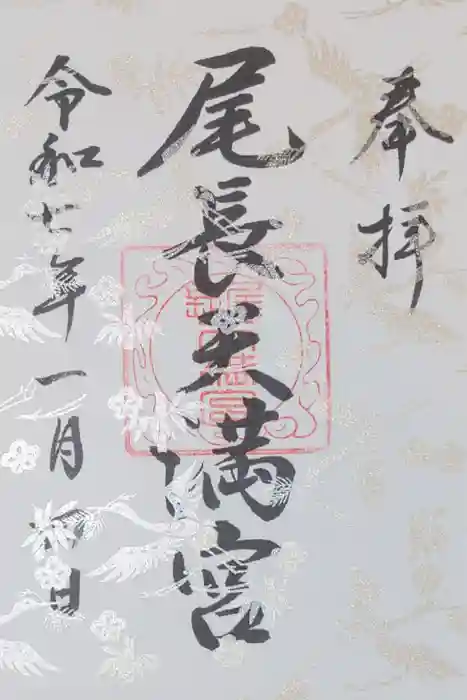 奉拝
尾長天満宮
令和七年一月 日